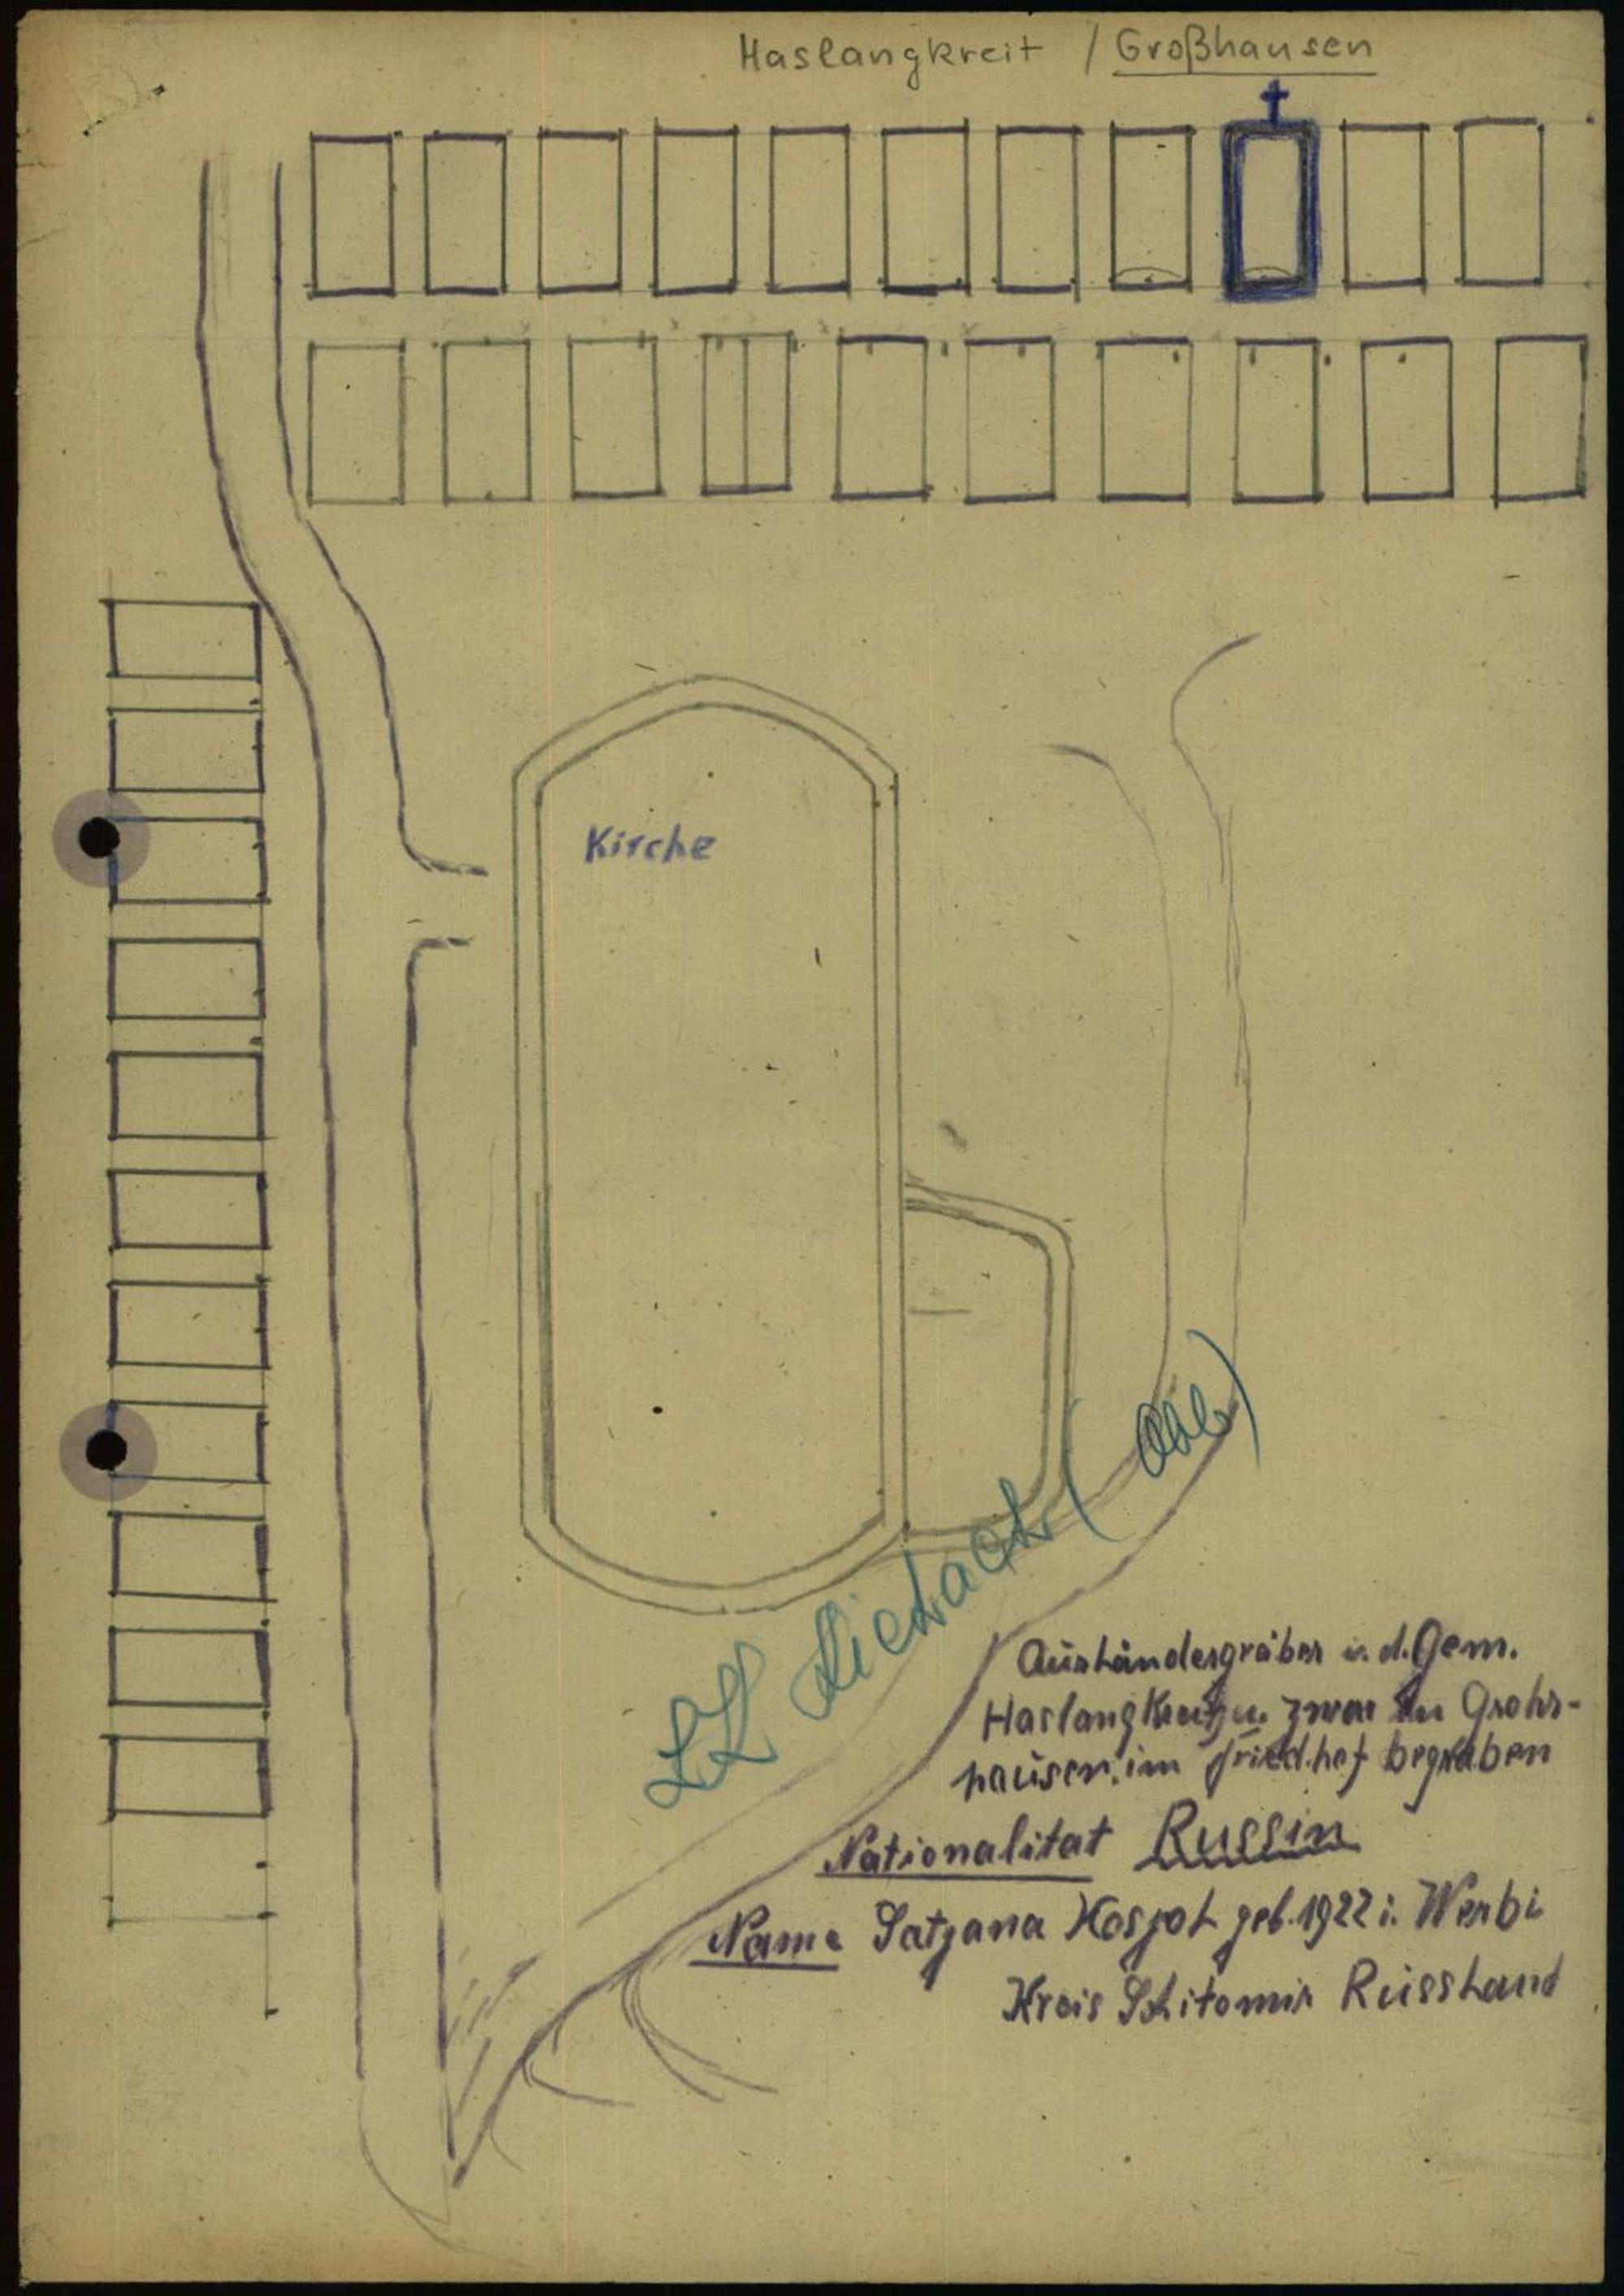 Haslangkreit / Großhausen
Kirche
LK Aichach (Obb)
Ausländergräber i. d. Gem.
Haslangkreit u. zwar in Grohs-
hausen im Friedhof begraben
Nationalitat Russin
Name Tatjana Kosjol geb. 1922 i. Werbi
Kreis Schitomir Russland